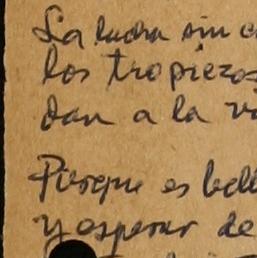 La lucha sin
los tropiezos
dan a la
Porque es
y esperar de